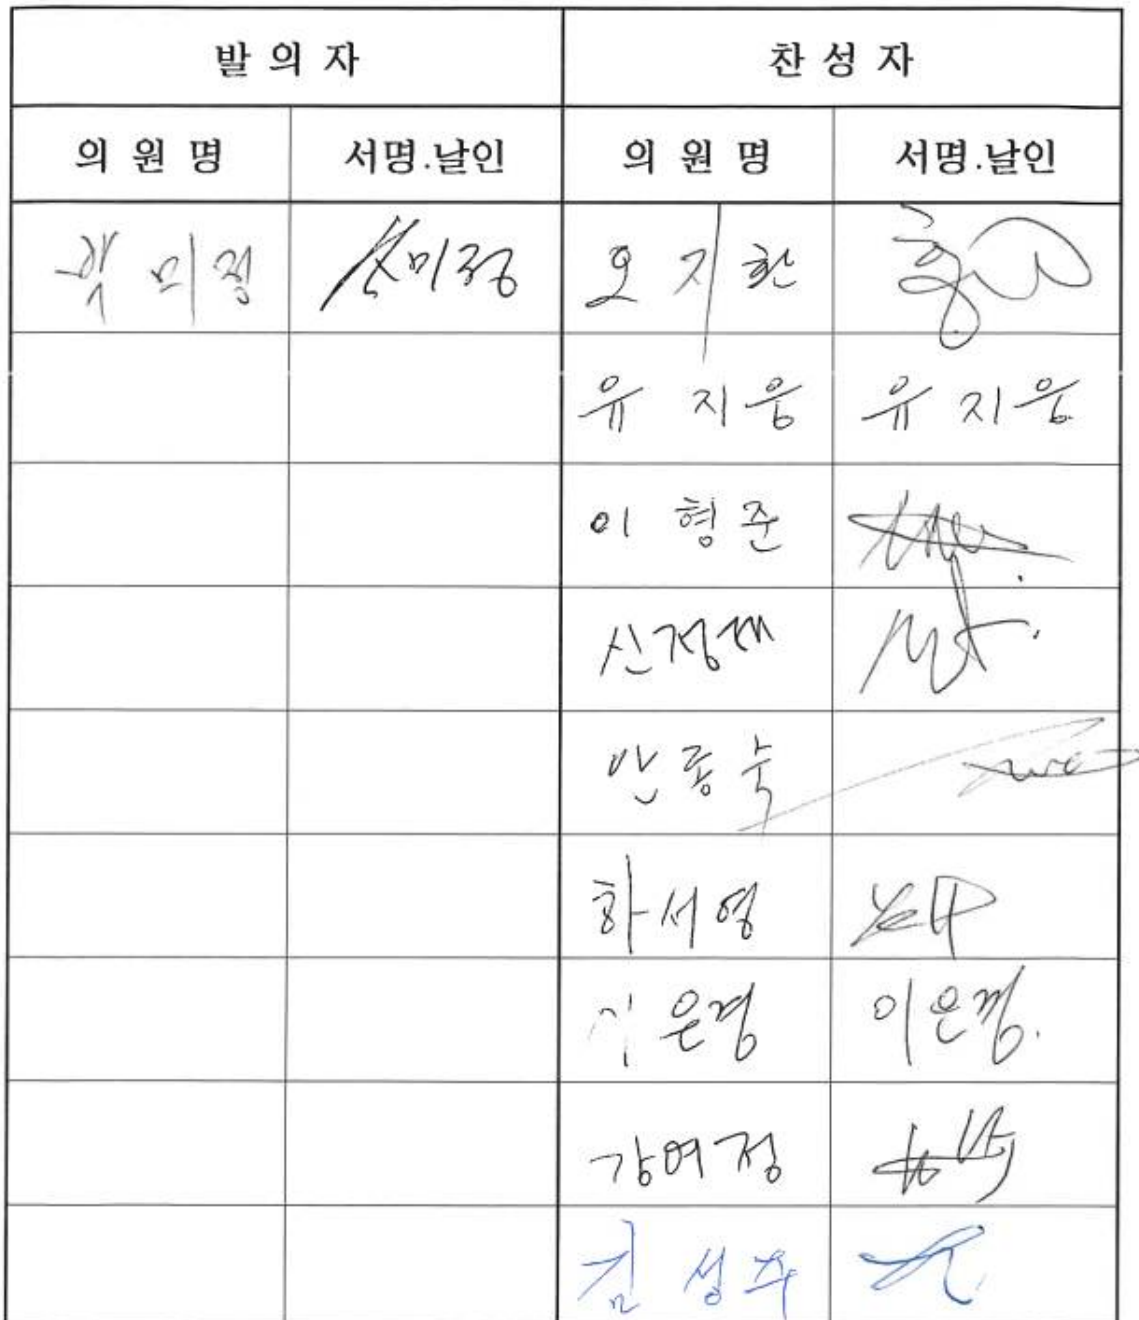 발 의 자 찬 성 자
의 원 명 서명.날인 의 원 명 서명.날인
박 미 정 박미정 오 지 환
유 지 웅 유 지 웅
이 형 준
신정태
안종숙
하서영
이 은경 이은경.
강여정
김 성주